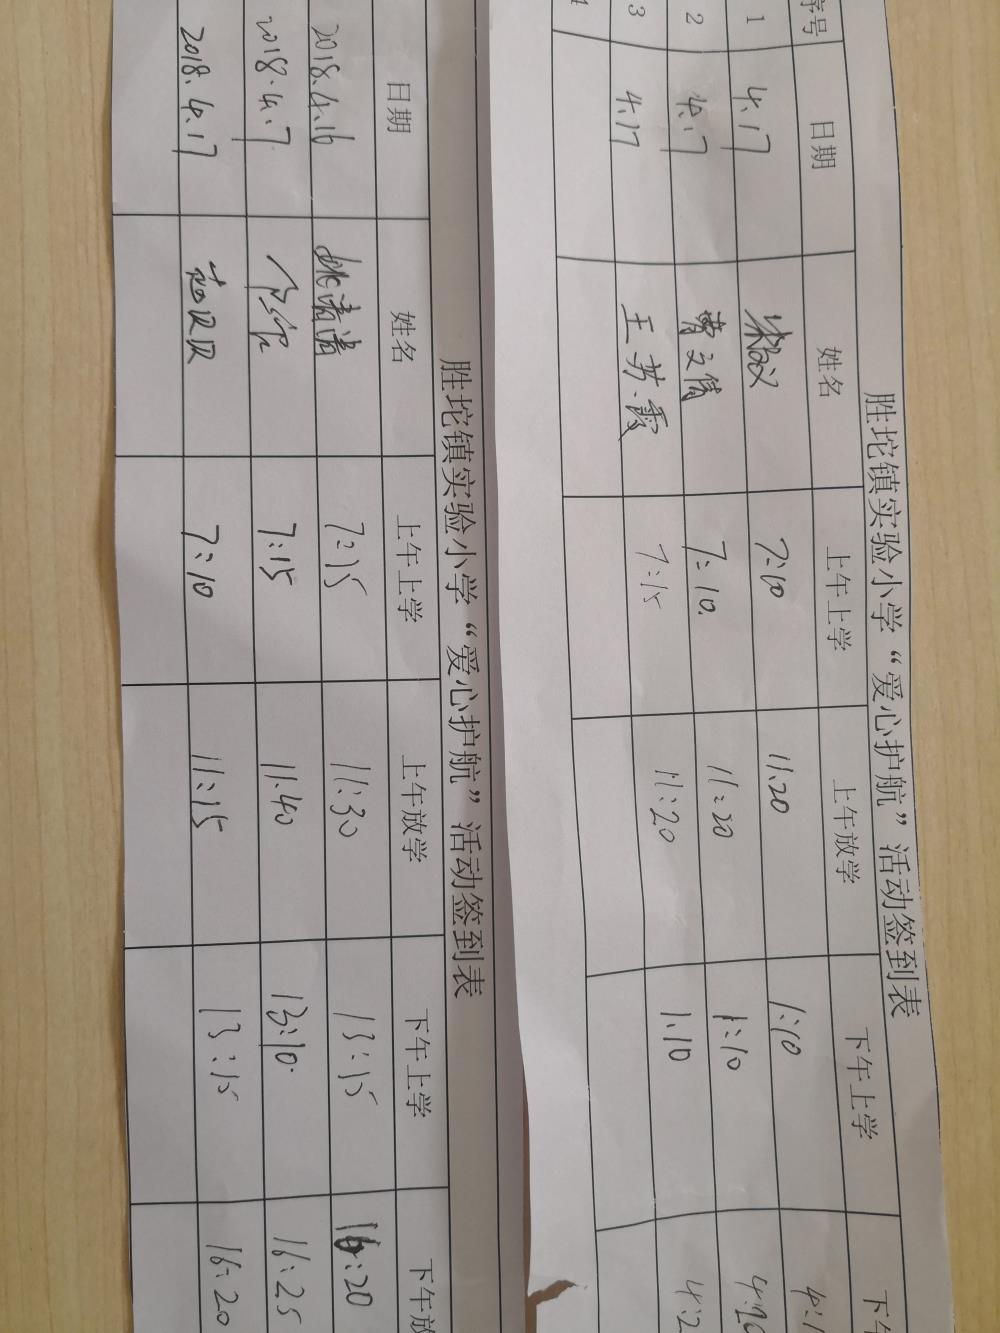 胜坨镇实验小学“爱心护航”活动签到表
序号 日期 姓名 上午上学 上午放学 下午上学 下午
1 4.17 7:10 11.20 1:10 4:1
2 4.17 曹文倩 7:10. 11:20 1:10 4:20
3 4.17 王芳霞 7:15 11:20 1:10 4:2
4
胜坨镇实验小学“爱心护航”活动签到表
日期 姓名 上午上学 上午放学 下午上学 下午放
2018.4.16 姚清清 7:15 11:30 13:15 16:20
2018.4.7 7:15 11:40 13:10. 16:25
2018.4.17 赵贝贝 7:10 11:15 13:15 16:20